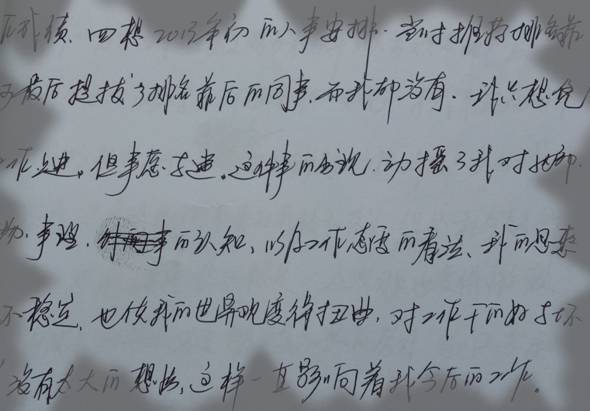 成绩。回想2013年初的人事安排。当时推荐排名靠
最后提拔了排名靠后的同事，而我却没有。我只想凭
工作上进，但事愿与违。这种事的出现，动摇了我对
事理、事的认知，以及工作态度的看法、我的思想
不稳定，也使我的世界观变得扭曲，对工作干的好与坏
没有太大的想法，这样一直影响着我今后的工作。